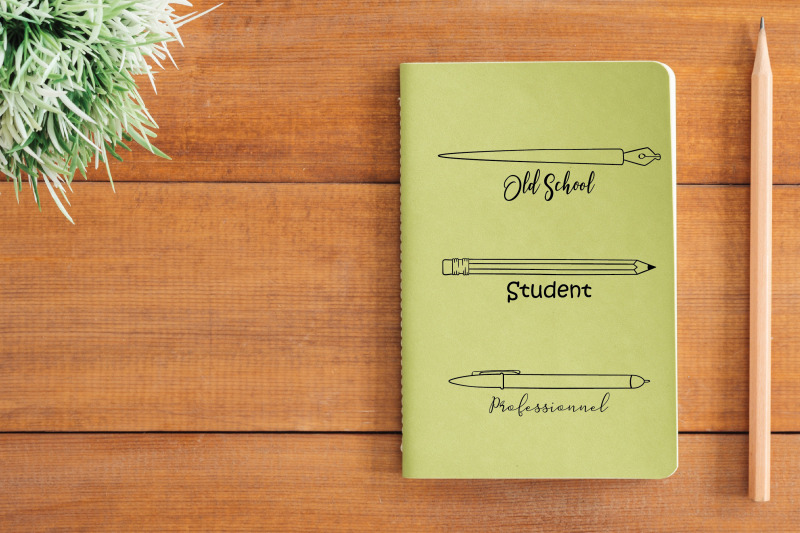 Old School
Student
Professionnel